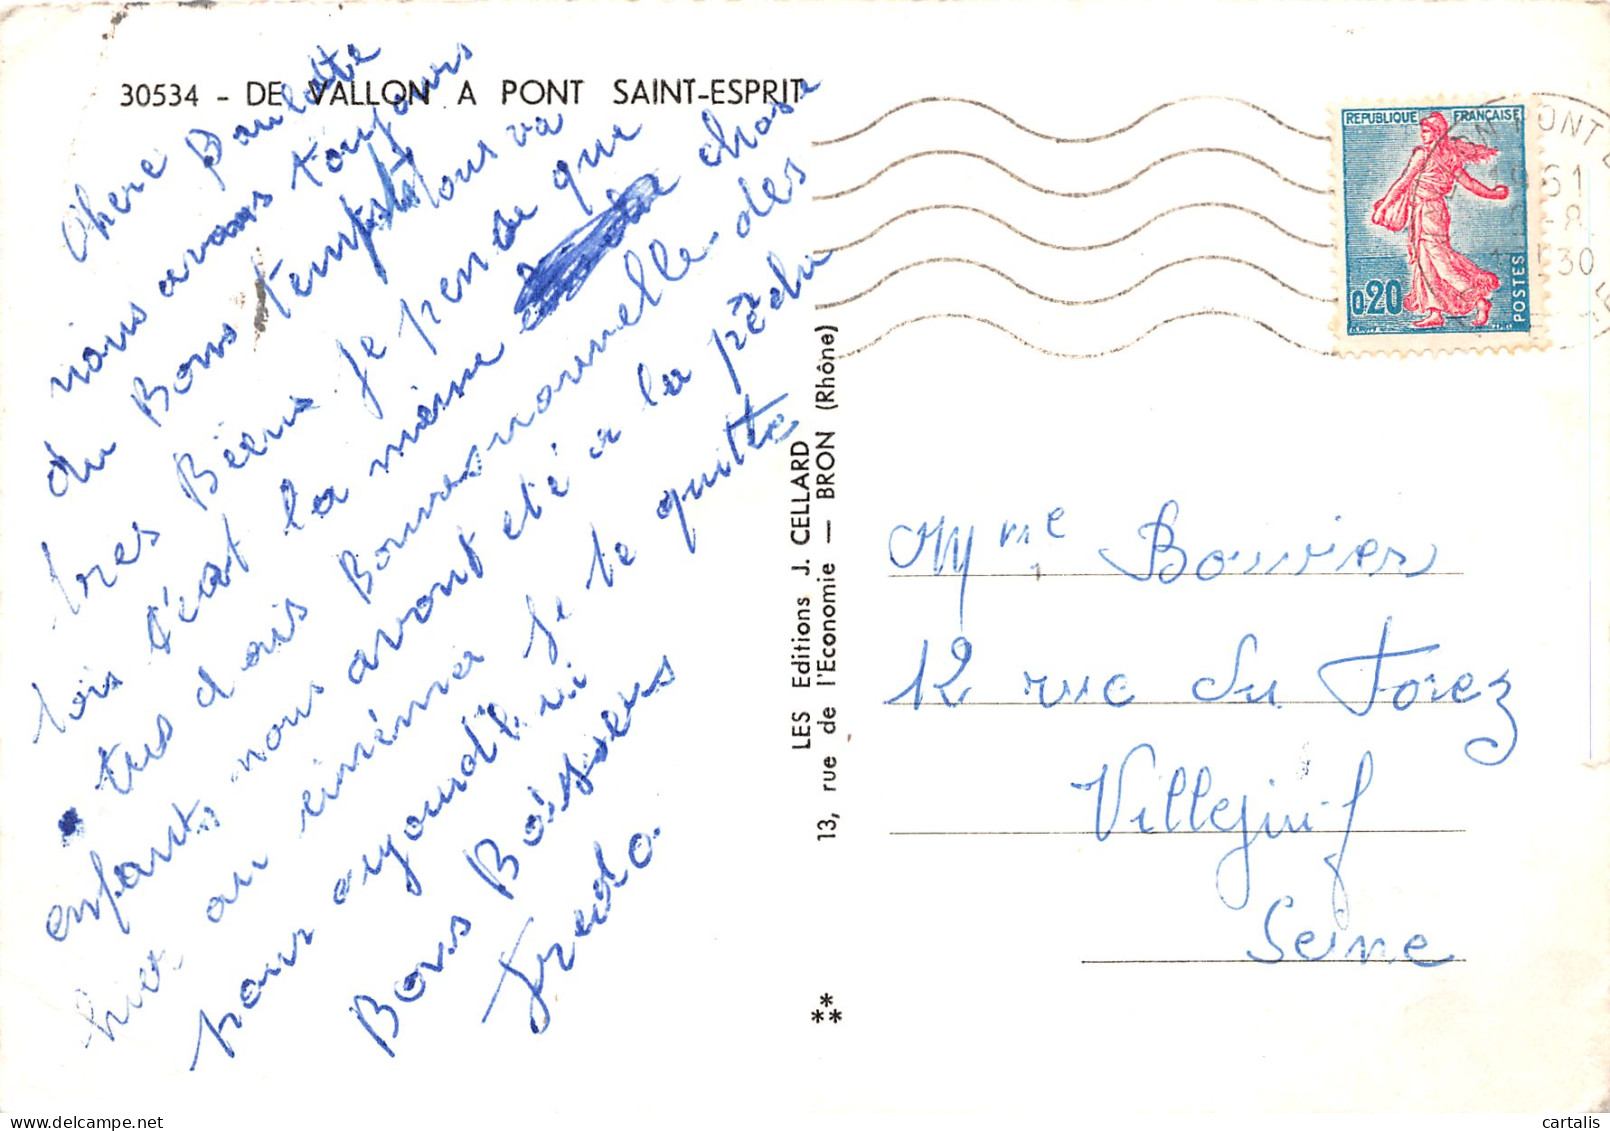 30534 - DE VALLON A PONT SAINT-ESPRIT
Chere Paulette
nous avons toujours
du Bons temps tous va
tres Biens je pense que
toi s'éat la meme chose
tus dois Bonnes nouvelle des
enfants nous avont eté a la pêche
hier au cinéma je te quitte
pour aujourdhui
Bons Baisers
Fredo.
LES Editions J. CELLARD
13, rue de l'Economie — BRON (Rhône)
REPUBLIQUE FRANÇAISE
0,20
POSTES
1961
-8
30
Mme Bouvier
12 rue du Forez
Villejuif
Seine
delcampe.net
cartalis